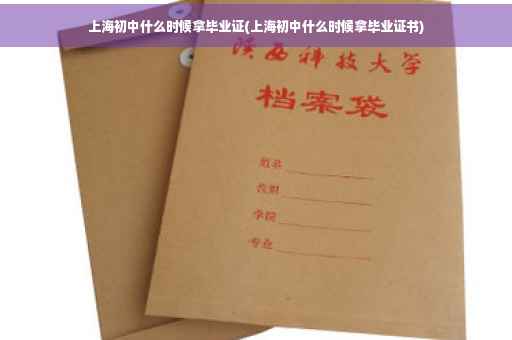 上海初中什么时候拿毕业证(上海初中什么时候拿毕业证书)
陕西科技大学
档案袋
姓名
学院
专业